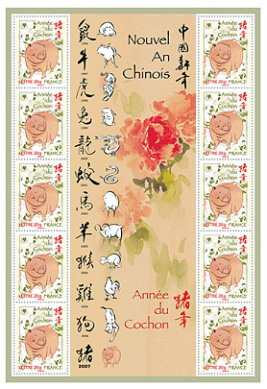 Nouvel
An
Chinois
中國新年
鼠
牛
虎
兔
龍
蛇
馬
羊
猴
雞
狗
豬
2007
Année
du
Cochon
豬年
Année du Cochon
豬年
LETTRE 20g FRANCE
Année du Cochon
豬年
LETTRE 20g FRANCE
Année du Cochon
豬年
LETTRE 20g FRANCE
Année du Cochon
豬年
LETTRE 20g FRANCE
Année du Cochon
豬年
LETTRE 20g FRANCE
Année du Cochon
豬年
LETTRE 20g FRANCE
Année du Cochon
豬年
LETTRE 20g FRANCE
Année du Cochon
豬年
LETTRE 20g FRANCE
Année du Cochon
豬年
LETTRE 20g FRANCE
Année du Cochon
豬年
LETTRE 20g FRANCE